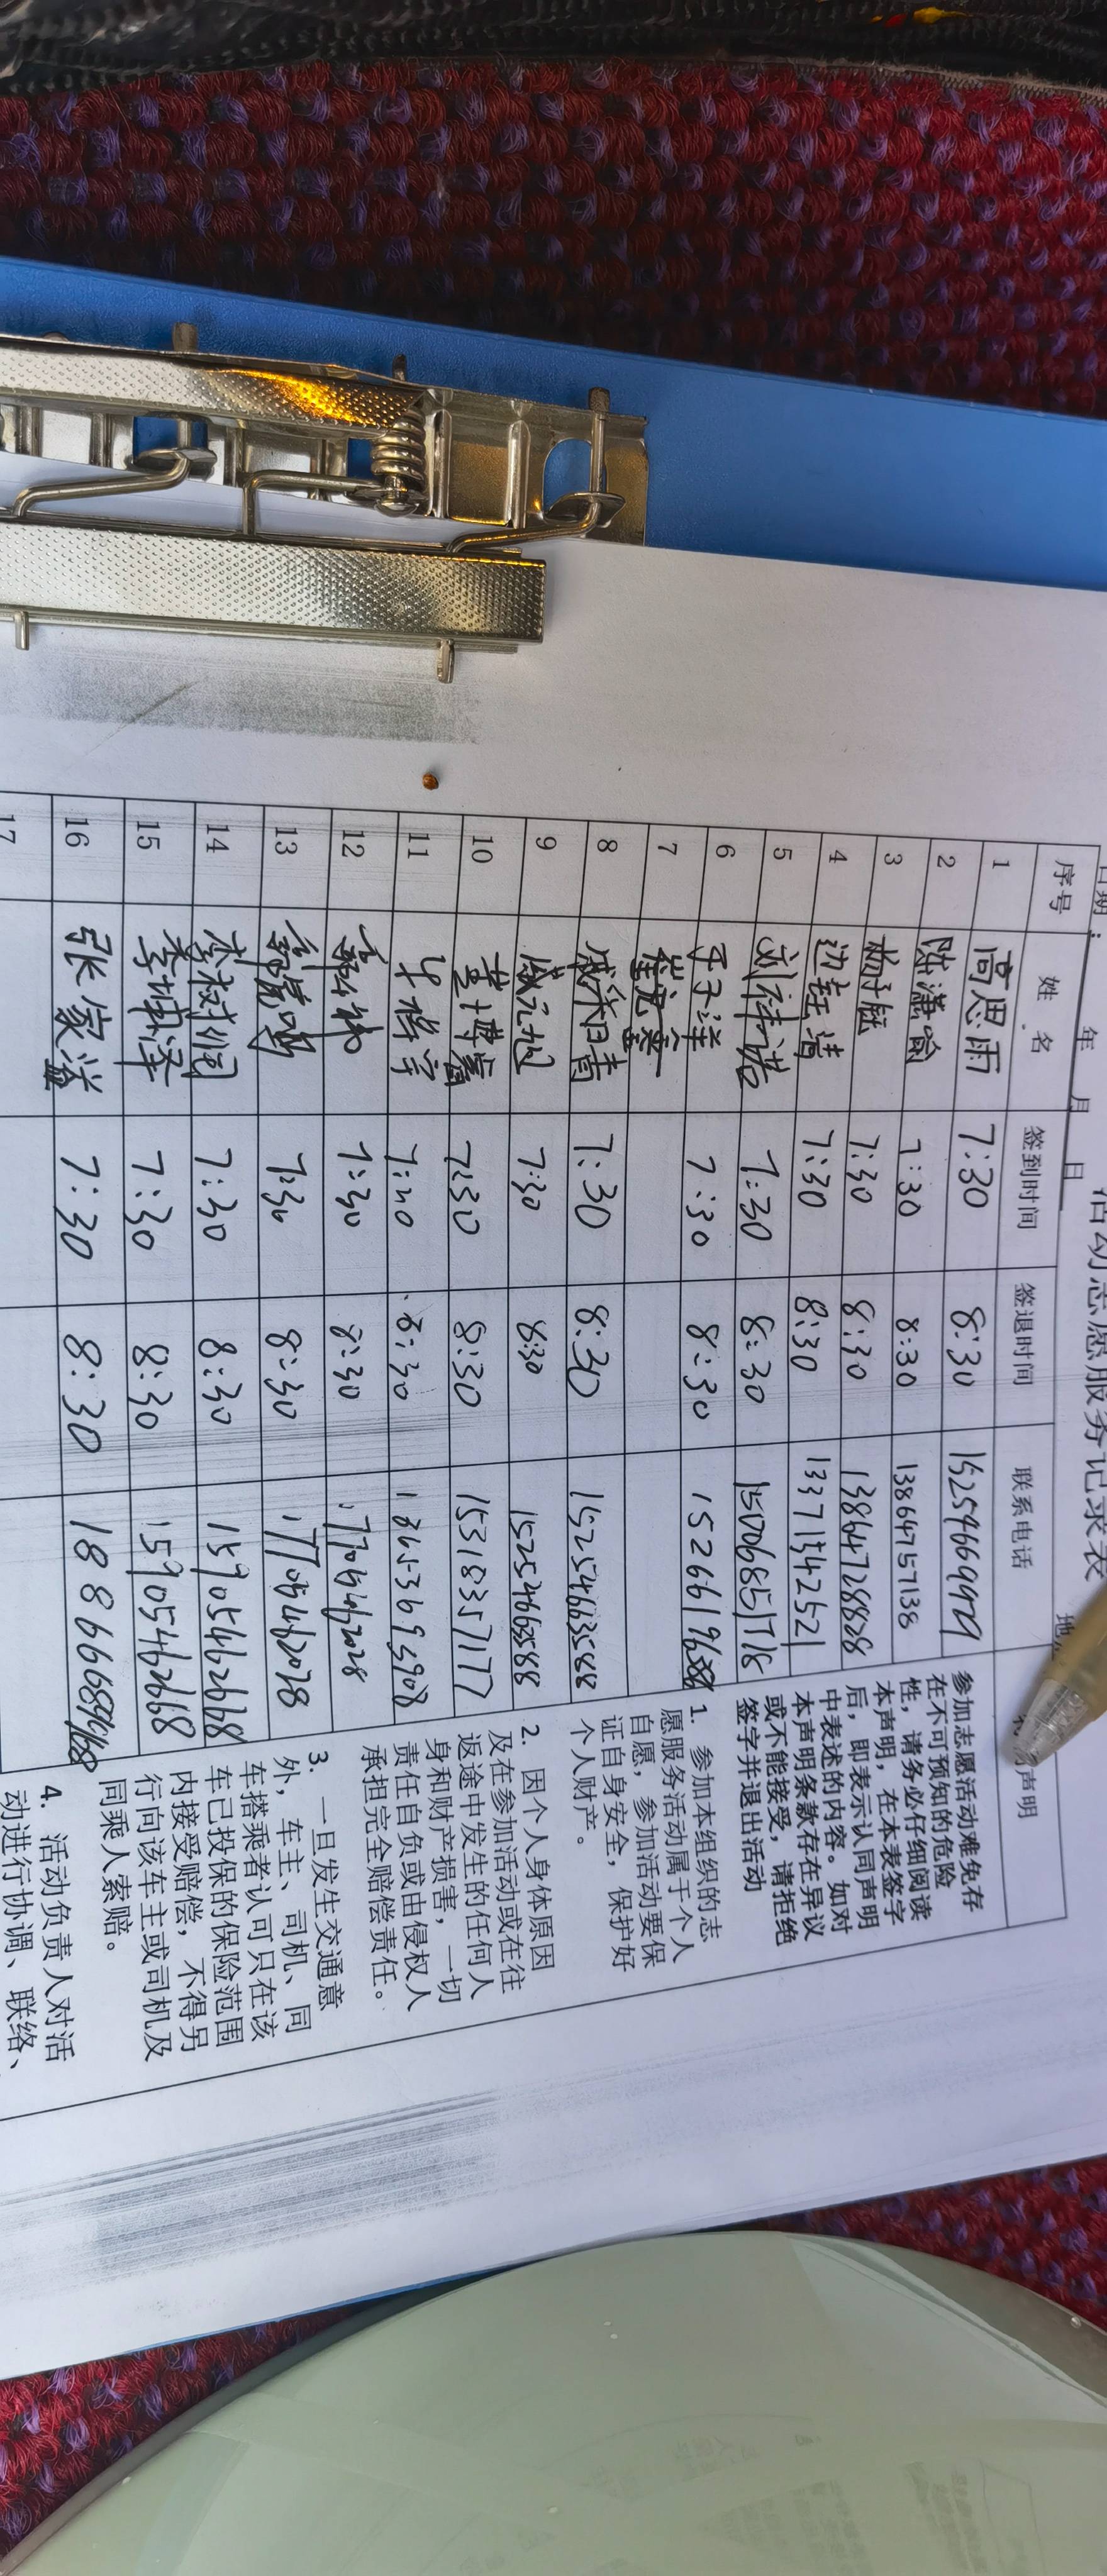 活动志愿服务记录表
日期： 年 月 日
序号 姓名 签到时间 签退时间 联系电话 声明
1 高思雨 7:30 8:30 15254669979
2 陈潇喻 7:30 8:30 13864757138
3 杨子铤 7:30 8:30 13864728828
4 7:30 8:30 13371542521
5 刘祎诺 7:30 8:30 15006851718
6 于子洋 7:30 8:30
7
8 7:30 8:30 15254663588
9 戚元旭 7:30 8:30 15254663588
10 董博睿 7:30 8:30 15318357177
11 8:30
12 7:30 8:30
13 7:30 8:30 17705462028
14 李树润 7:30 8:30 15905462668
15 李坤泽 7:30 8:30 15905462668
16 张家溢 7:30 8:30
17
参加志愿活动难免存
在不可预知的危险
性，请务必仔细阅读
本声明，在本表签字
后，即表示认同声明
中表述的内容。如对
本声明条款存在异议
或不能接受，请拒绝
签字并退出活动
1. 参加本组织的志
愿服务活动属于个人
自愿，参加活动要保
证自身安全，保护好
个人财产。
2. 因个人身体原因
及在参加活动或在往
返途中发生的任何人
身和财产损害，一切
责任自负或由侵权人
承担完全赔偿责任。
3. 一旦发生交通意
外，车主、司机、同
车搭乘者认可只在该
车已投保的保险范围
内接受赔偿，不得另
行向该车主或司机及
同乘人索赔。
4. 活动负责人对活
动进行协调、联络、